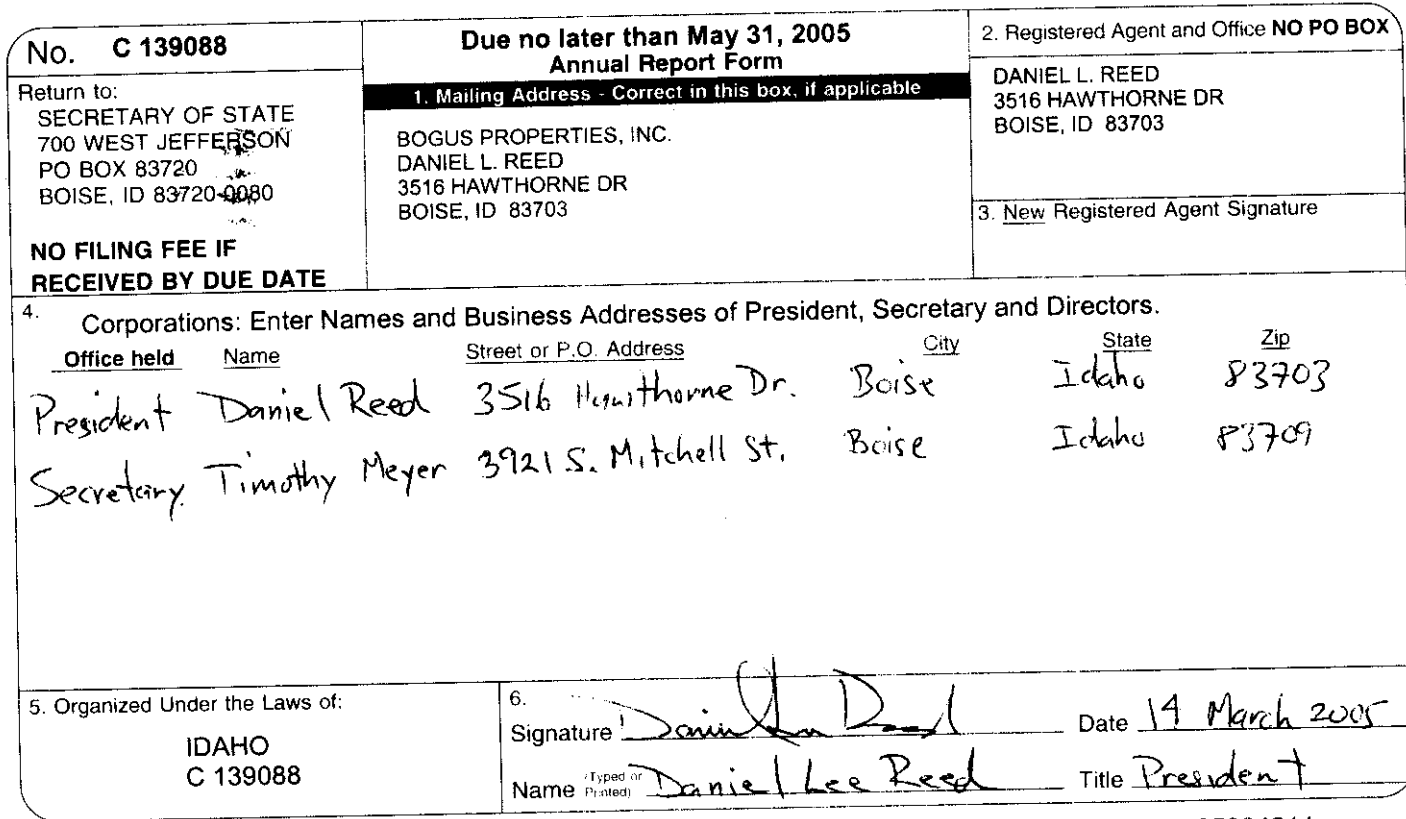 No. C 139088
Return to:
SECRETARY OF STATE
700 WEST JEFFERSON
PO BOX 83720
BOISE, ID 83720-0080
NO FILING FEE IF
RECEIVED BY DUE DATE
Due no later than May 31, 2005
Annual Report Form
1. Mailing Address - Correct in this box, if applicable
BOGUS PROPERTIES, INC.
DANIEL L. REED
3516 HAWTHORNE DR
BOISE, ID 83703
2. Registered Agent and Office NO PO BOX
DANIEL L. REED
3516 HAWTHORNE DR
BOISE, ID 83703
3. New Registered Agent Signature
4. Corporations: Enter Names and Business Addresses of President, Secretary and Directors.
Office held Name Street or P.O. Address City State Zip
President Daniel Reed 3516 Hawthorne Dr. Boise Idaho 83703
Secretary Timothy Meyer 3921 S. Mitchell St. Boise Idaho 83709
5. Organized Under the Laws of:
IDAHO
C 139088
6.
Signature Date 14 March 2005
Name (Typed or Printed) Daniel Lee Reed Title President